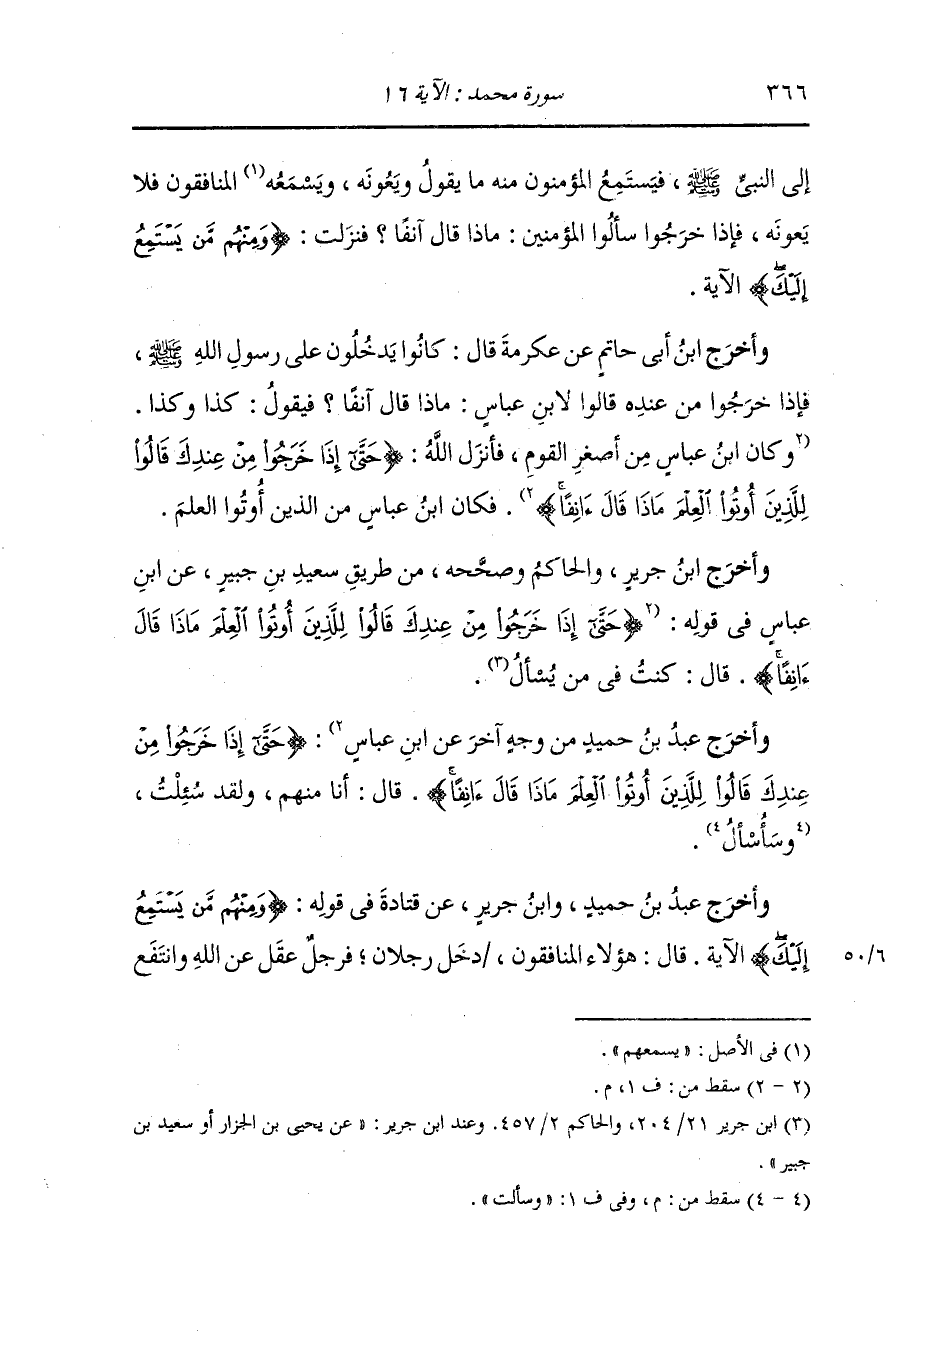 ٣٦٦ سورة محمد : الآية ١٦
إلى النبىِّ ﷺ ، فيَستَمِعُ المؤمنون منه ما يقولُ ويَعُونَه ، ويَسْمَعُه(١) المنافقون فلا
يَعونَه ، فإذا خرَجُوا سألُوا المؤمنين : ماذا قال آنفًا ؟ فنزَلت : ﴿وَمِنْهُم مَّن يَسْتَمِعُ
إِلَيْكَۖ﴾ الآية .
وأخرَج ابنُ أبى حاتمٍ عن عكرمةَ قال : كانُوا يَدخُلُون على رسولِ اللهِ ﷺ ،
فإذا خرَجُوا من عندِه قالوا لابنِ عباسٍ : ماذا قال آنفًا ؟ فيقولُ : كذا وكذا .
(٢وكان ابنُ عباسٍ مِن أصغرِ القومِ ، فأنزَل اللَّهُ : ﴿حَتَّىٰٓ إِذَا خَرَجُواْ مِنْ عِندِكَ قَالُواْ
لِلَّذِينَ أُوتُواْ ٱلْعِلْمَ مَاذَا قَالَ ءَانِفًاۚ﴾٢) . فكان ابنُ عباسٍ من الذين أُوتُوا العلمَ .
وأخرَج ابنُ جريرٍ ، والحاكمُ وصحَّحه ، من طريقِ سعيدِ بنِ جبيرٍ ، عن ابنِ
عباسٍ فى قولِه : (٢﴿حَتَّىٰٓ إِذَا خَرَجُواْ مِنْ عِندِكَ قَالُواْ لِلَّذِينَ أُوتُواْ ٱلْعِلْمَ مَاذَا قَالَ
ءَانِفًاۚ﴾ . قال : كنتُ فى من يُسْأَلُ(٣) .
وأخرَج عبدُ بنُ حميدٍ من وجهٍ آخرَ عن ابنِ عباسٍ٢) : ﴿حَتَّىٰٓ إِذَا خَرَجُواْ مِنْ
عِندِكَ قَالُواْ لِلَّذِينَ أُوتُواْ ٱلْعِلْمَ مَاذَا قَالَ ءَانِفًاۚ﴾ . قال : أنا منهم ، ولقد سُئِلْتُ ،
(٤وسَأُسْأَلُ٤) .
وأخرَج عبدُ بنُ حميدٍ ، وابنُ جريرٍ ، عن قتادةَ فى قولِه : ﴿وَمِنْهُم مَّن يَسْتَمِعُ
إِلَيْكَۖ﴾ الآية . قال : هؤلاء المنافقون ، /دخَل رجلان ؛ فرجلٌ عقَل عن اللهِ وانتَفَع ٥٠/٦
(١) فى الأصل : « يسمعهم » .
(٢ - ٢) سقط من : ف ١، م .
(٣) ابن جرير ٢١/ ٢٠٤، والحاكم ٢/ ٤٥٧. وعند ابن جرير : « عن يحيى بن الجزار أو سعيد بن
جبير » .
(٤ - ٤) سقط من : م ، وفى ف ١: « وسألت » .